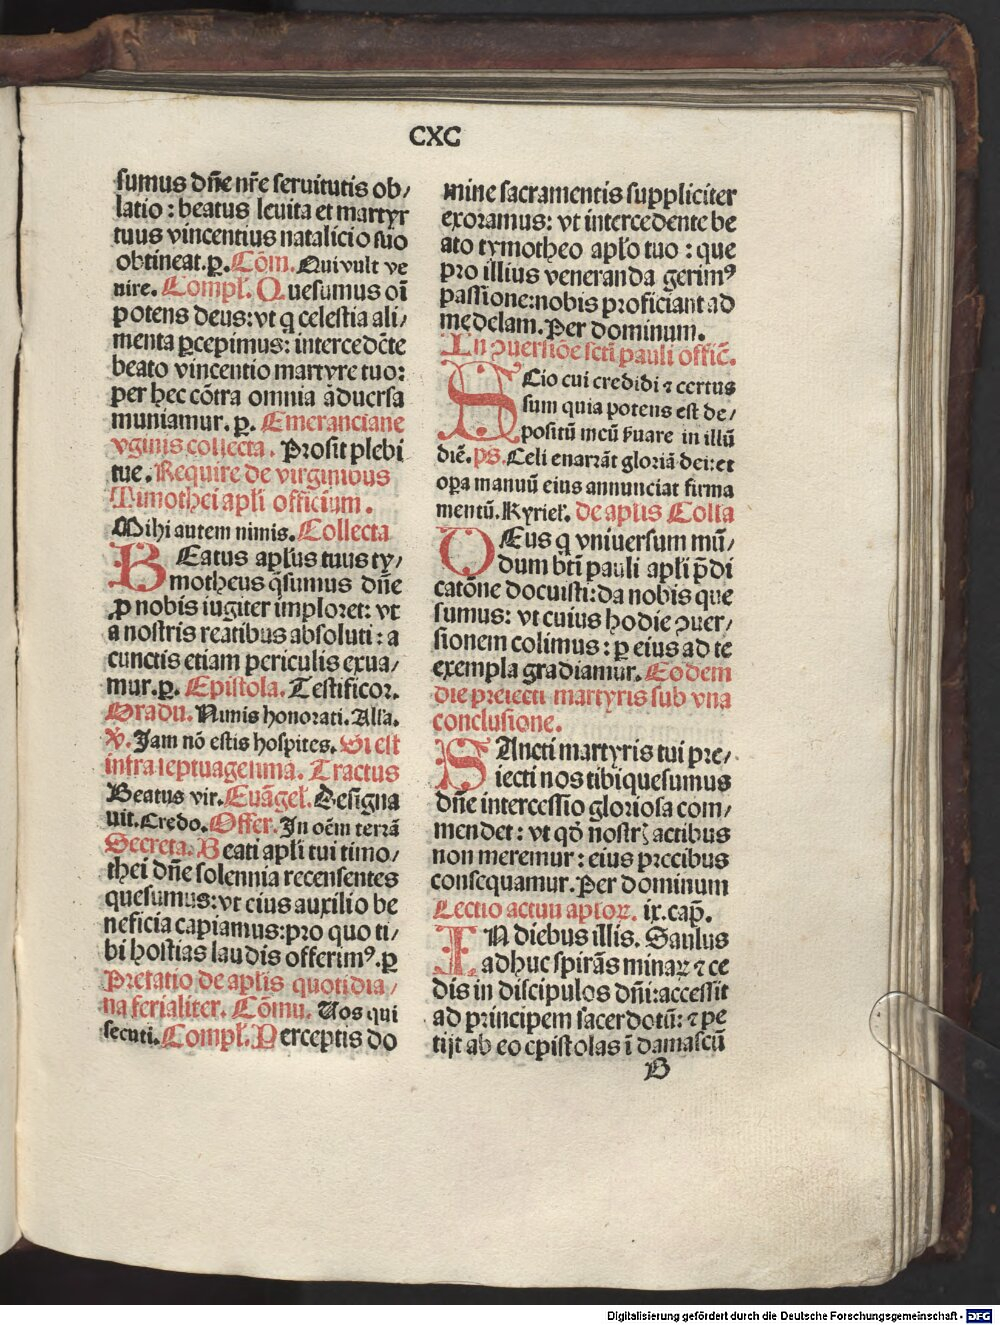 CXC
sumus dn̄e nr̄e seruitutis ob/
latio : beatus leuita et martyr
tuus vincentius natalicio suo
obtineat.ꝑ. Cōm. Qui vult ve
nire. Compl̄. Quesumus oī
potens deus: vt q celestia ali/
menta ꝑcepimus: intercedēte
beato vincentio martyre tuo:
per hec cōtra omnia aduersa
muniamur. ꝑ. Emeranciane
vginis collecta. Prosit plebi
tue. Require de virginibus
Timothei apl̄i officium.
Mihi autem nimis. Collecta
BEatus apl̄us tuus ty/
motheus q̄sumus dn̄e
ꝓ nobis iugiter imploret: vt
a nostris reatibus absoluti : a
cunctis etiam periculis exua/
mur.ꝑ. Epistola. Testificor.
Gradu. Nimis honorati. Alla.
v̄. Jam nō estis hospites. Si est
infra septuagesima. Tractus
Beatus vir. Euāgel̄. Designa
uit. Credo. Offer. In oēm terrā
Secreta. Beati apl̄i tui timo/
thei dn̄e solennia recensentes
quesumus: vt eius auxilio be
neficia capiamus: pro quo ti/
bi hostias laudis offerimꝰ. ꝑ
Prefatio de apl̄is quotidia/
na ferialiter. Cōmu. Uos qui
secuti. Compl̄. Perceptis do
mine sacramentis suppliciter
exoramus: vt intercedente be
ato tymotheo apl̄o tuo : que
pro illius veneranda gerimꝰ
passione: nobis proficiant ad
medelam. Per dominum.
In ꝯuersiōe scti pauli offic̄.
SCio cui credidi ⁊ certus
sum quia potens est de/
positū meū ẜuare in illū
diē. ps. Celi enarrāt gloriā dei: et
oꝑa manuū eius annunciat firma
mentū. Kyriel̄. de apl̄is Colla
DEus q vniuersum mū/
dum bt̄i pauli apl̄i p̄di
catōne docuisti: da nobis que
sumus: vt cuius hodie ꝯuer/
sionem colimus : ꝑ eius ad te
exempla gradiamur. Eodem
die preiecti martyris sub vna
conclusione.
SAncti martyris tui pre/
iecti nos tibi quesumus
dn̄e intercessio gloriosa com/
mendet : vt qđ nostrꝭ actibus
non meremur : eius precibus
consequamur. Per dominum
Lectio actuū aplorꝝ. ix. cap̄.
IN diebus illis. Saulus
adhuc spirās minaꝝ ⁊ ce
dis in discipulos dn̄i: accessit
ad principem sacerdotū: ⁊ pe
tijt ab eo epistolas ī damascū
B
Digitalisierung gefördert durch die Deutsche Forschungsgemeinschaft - DFG